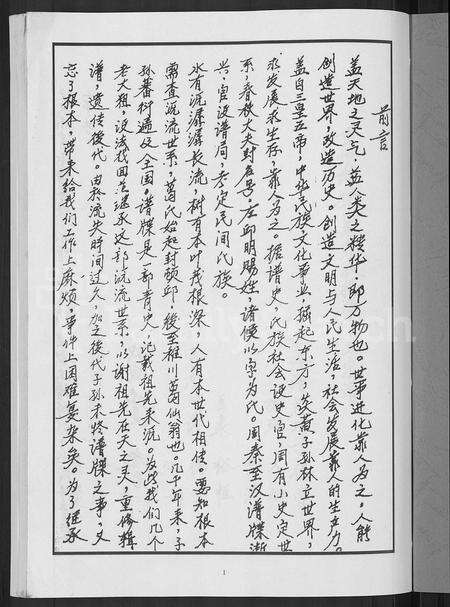 前言
盖天地之灵气，盖人类之精华，即万物也。世事进化靠人为之。人能
创造世界，改造历史。创造文明与人民生活，社会发展靠人的生产力。
盖自三皇五帝，中华民族文化事业，掘起东方，炎黄子孙林立世界，
求发展求生存，靠人为之。据谱史，氏族社会设史官，周有小史定世
系，春秋大夫封名号。左邱明赐姓，诸侯以字为氏。周秦至汉谱牒渐
兴，官设谱局，考定民间氏族。
水有流源源长流，树有本叶茂根深，人有本世代相传。要知根本
需查源流世系，葛氏始起封颍邱，後至稚川葛仙翁也。几千年来，子
孙蕃衍遍及全国。谱牒是一部青史，记载祖先来源。为此我们几个
老大粗，设法找回并继承这部源流世系，以谢祖先在天之灵，重修辑
谱，遗传後代。由於流失时间过久，加之後代子孙未修谱牒之事，又
忘了根本，带来给我们工作上麻烦，事件上困难复杂矣。为了继承
1